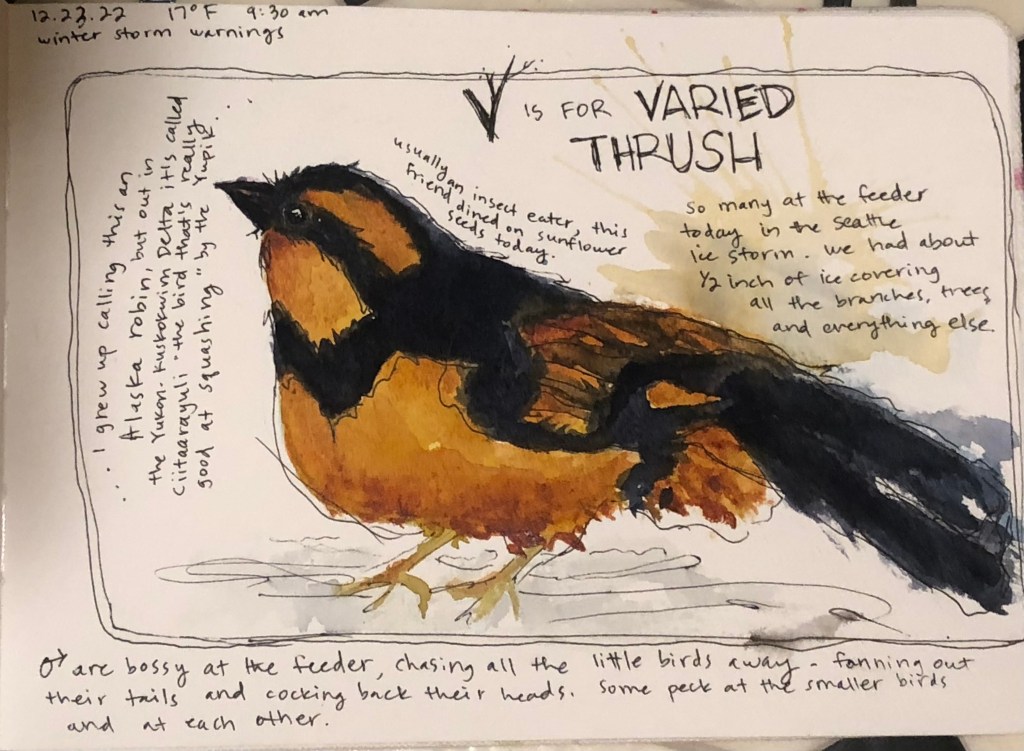 12.23.22 17°F 9:30 am
winter storm warnings
V IS FOR VARIED
THRUSH
usually an insect eater, this
friend dined on sunflower
seeds today.
so many at the feeder
today in the seattle
ice storm. we had about
1/2 inch of ice covering
all the branches, trees,
and everything else.
... I grew up calling this an
Alaska robin, but out in
the Yukon-Kuskokwim Delta it's called
Ciitaarayuli "the bird that's really
good at squashing" by the Yupik...
♂ are bossy at the feeder, chasing all the little birds away - fanning out
their tails and cocking back their heads. Some peck at the smaller birds
and at each other.